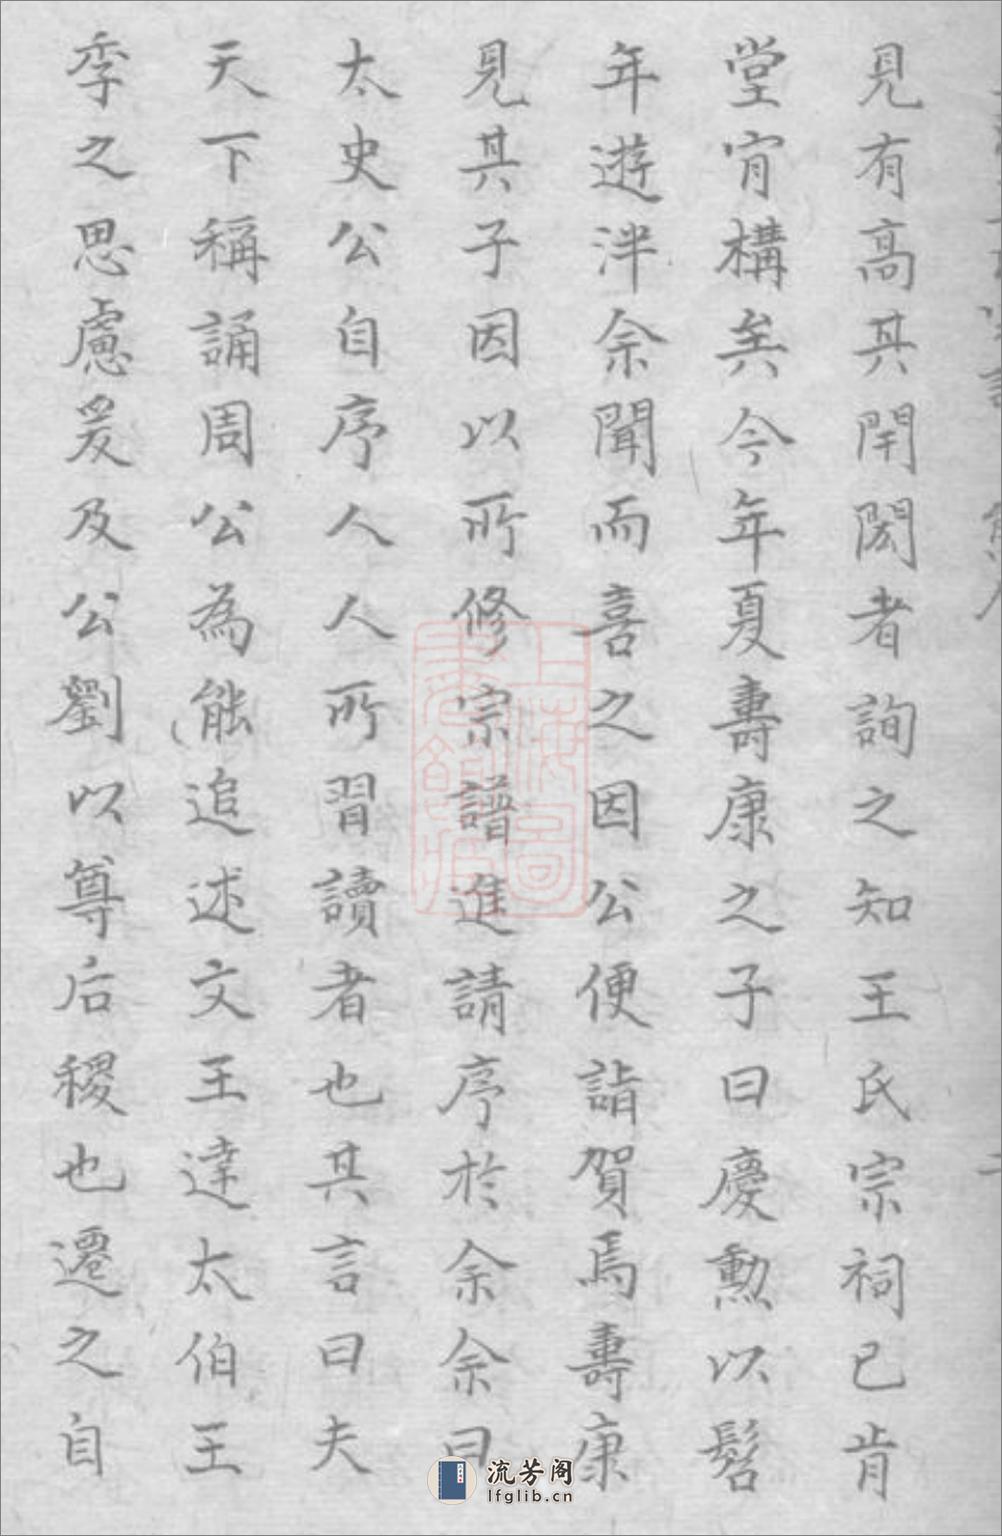 見有高其閈閎者詢之知王氏宗祠已肯
堂肯構矣今年夏壽康之子曰慶勲以髫
年遊泮余聞而喜之因公便詣賀焉壽康
見其子因以所修宗譜進請序於余余曰
太史公自序人人所習讀者也其言曰夫
天下稱誦周公為能追述文王達太伯王
季之思慮爰及公劉以尊后稷也遷之自
上海圖
書館藏
流芳阁
lfglib.cn